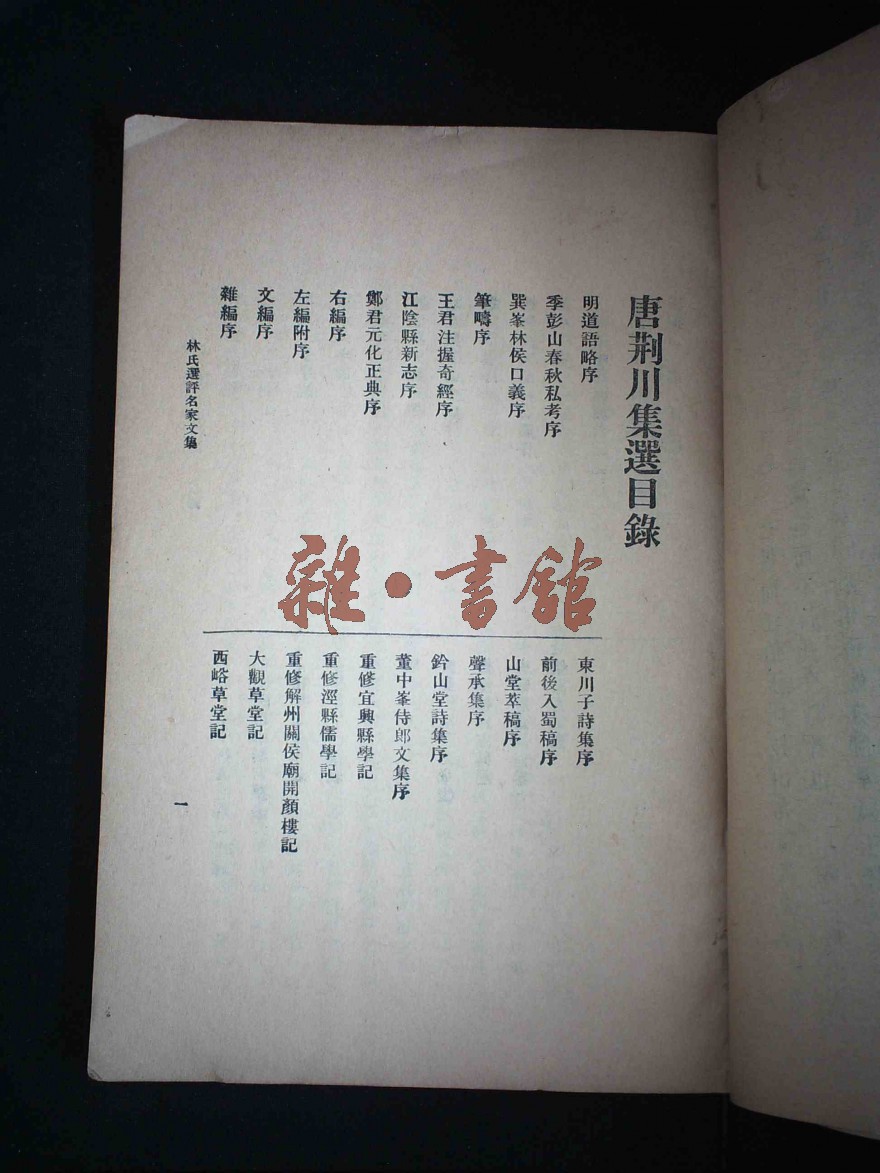 唐荊川集選目錄
明道語略序
季彭山春秋私考序
巽峯林侯口義序
筆疇序
王君注握奇經序
江陰縣新志序
鄭君元化正典序
右編序
左編附序
文編序
雜編序
東川子詩集序
前後入蜀稿序
山堂萃稿序
聲承集序
鈐山堂詩集序
董中峯侍郎文集序
重修宜興縣學記
重修涇縣儒學記
重修解州關侯廟開顏樓記
大觀草堂記
西峪草堂記
林氏選評名家文集
一
雜·書館